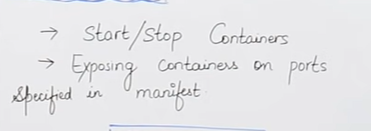 → Start/Stop Containers
→ Exposing containers on ports
specified in manifest.